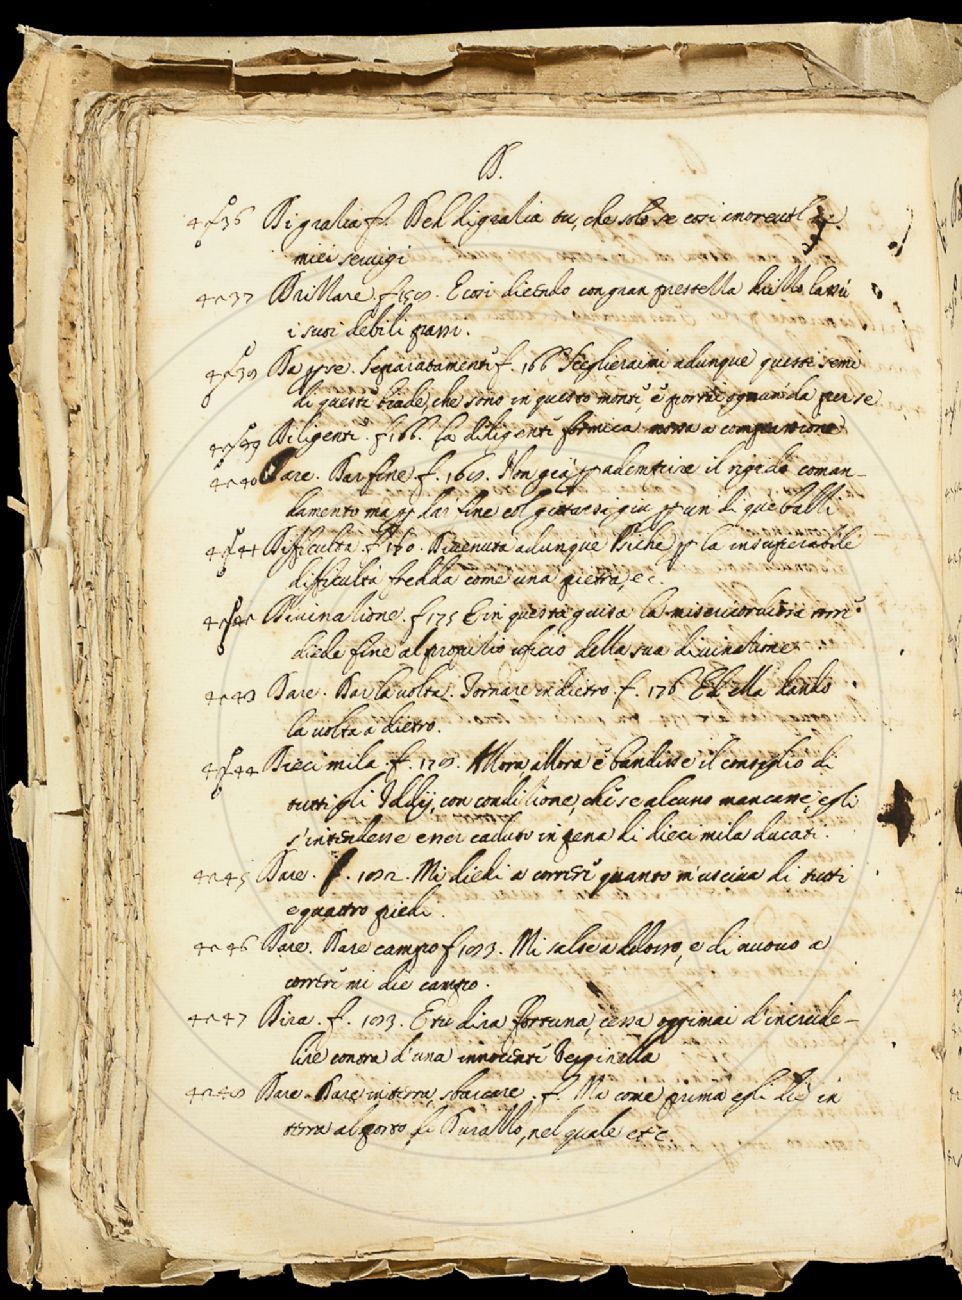 D.
36 Disgratia f. Deh disgratia tu, che solo se così
miei servigi
37 Drillare. f. 159. E così dicendo con gran prestezza drizzò lassù
i suoi debili passi.
39 Da per se. Separatamente f. 166 Sceglieraimi adunque questi semi
di queste biade, che sono in questo monte, e porrle ognuna da per se
Diligente. f. 166. La diligente formica mossa a compassione
40 Dare. Dar fine f. 169. Non già per adempire il rigido coman-
damento ma per dar fine col gittarsi giù per un di que balzi
41 Difficultà f. 170. Divenuta adunque Psiche per la insuperabile
difficultà fredda come una pietra, ec.
Divinatione. f. 175 E in questa guisa la
diede fine al proprio uficio della sua divinatione
43 Dare. Dar la volta. Tornare indietro. f. 176 Ed ella dando
la volta a dietro.
44 Dieci mila. f. 179. Allora allora e' bandisse il consiglio di
tutti gli Iddij, con conditione, che se alcuno mancasse, egli
s'intendesse esser caduto in pena di dieci mila ducati.
45 Dare. f. 192. Mi diedi a correre quanto m'usciva di tutti
e quattro piedi.
46 Dare. Dare campo f. 193. Mi salse addosso, e di nuovo a
correre mi die campo.
47 Dira. f. 193. E tu dira fortuna, cessa oggimai d'incrude-
lire contra d'una innocente Verginella
48 Dare. Dare in terra, sbarcare. f. Ma come prima egli die in
terra al porto di Durazzo, nel quale etc.